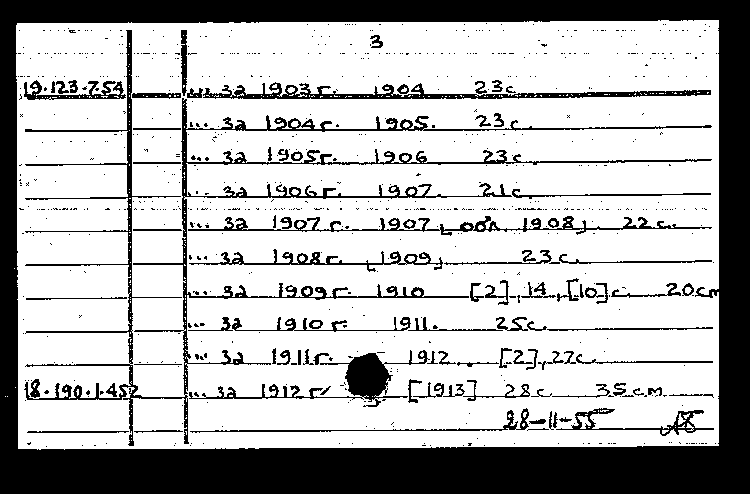 3
19.123.7.54 ... за 1903г. 1904 23с.
... за 1904г. 1905. 23с.
... за 1905г. 1906 23с.
... за 1906г. 1907. 21с.
... за 1907г. 1907 [обл. 1908] 22с.
... за 1908г. [1909] 23с.
... за 1909г. 1910 [2], 14, [10]с. 20cm
... за 1910г. 1911. 25с.
... за 1911г. 1912. [2], 27с.
18.190.1.452 ... за 1912г. [1913] 28с. 35cm
28-11-55